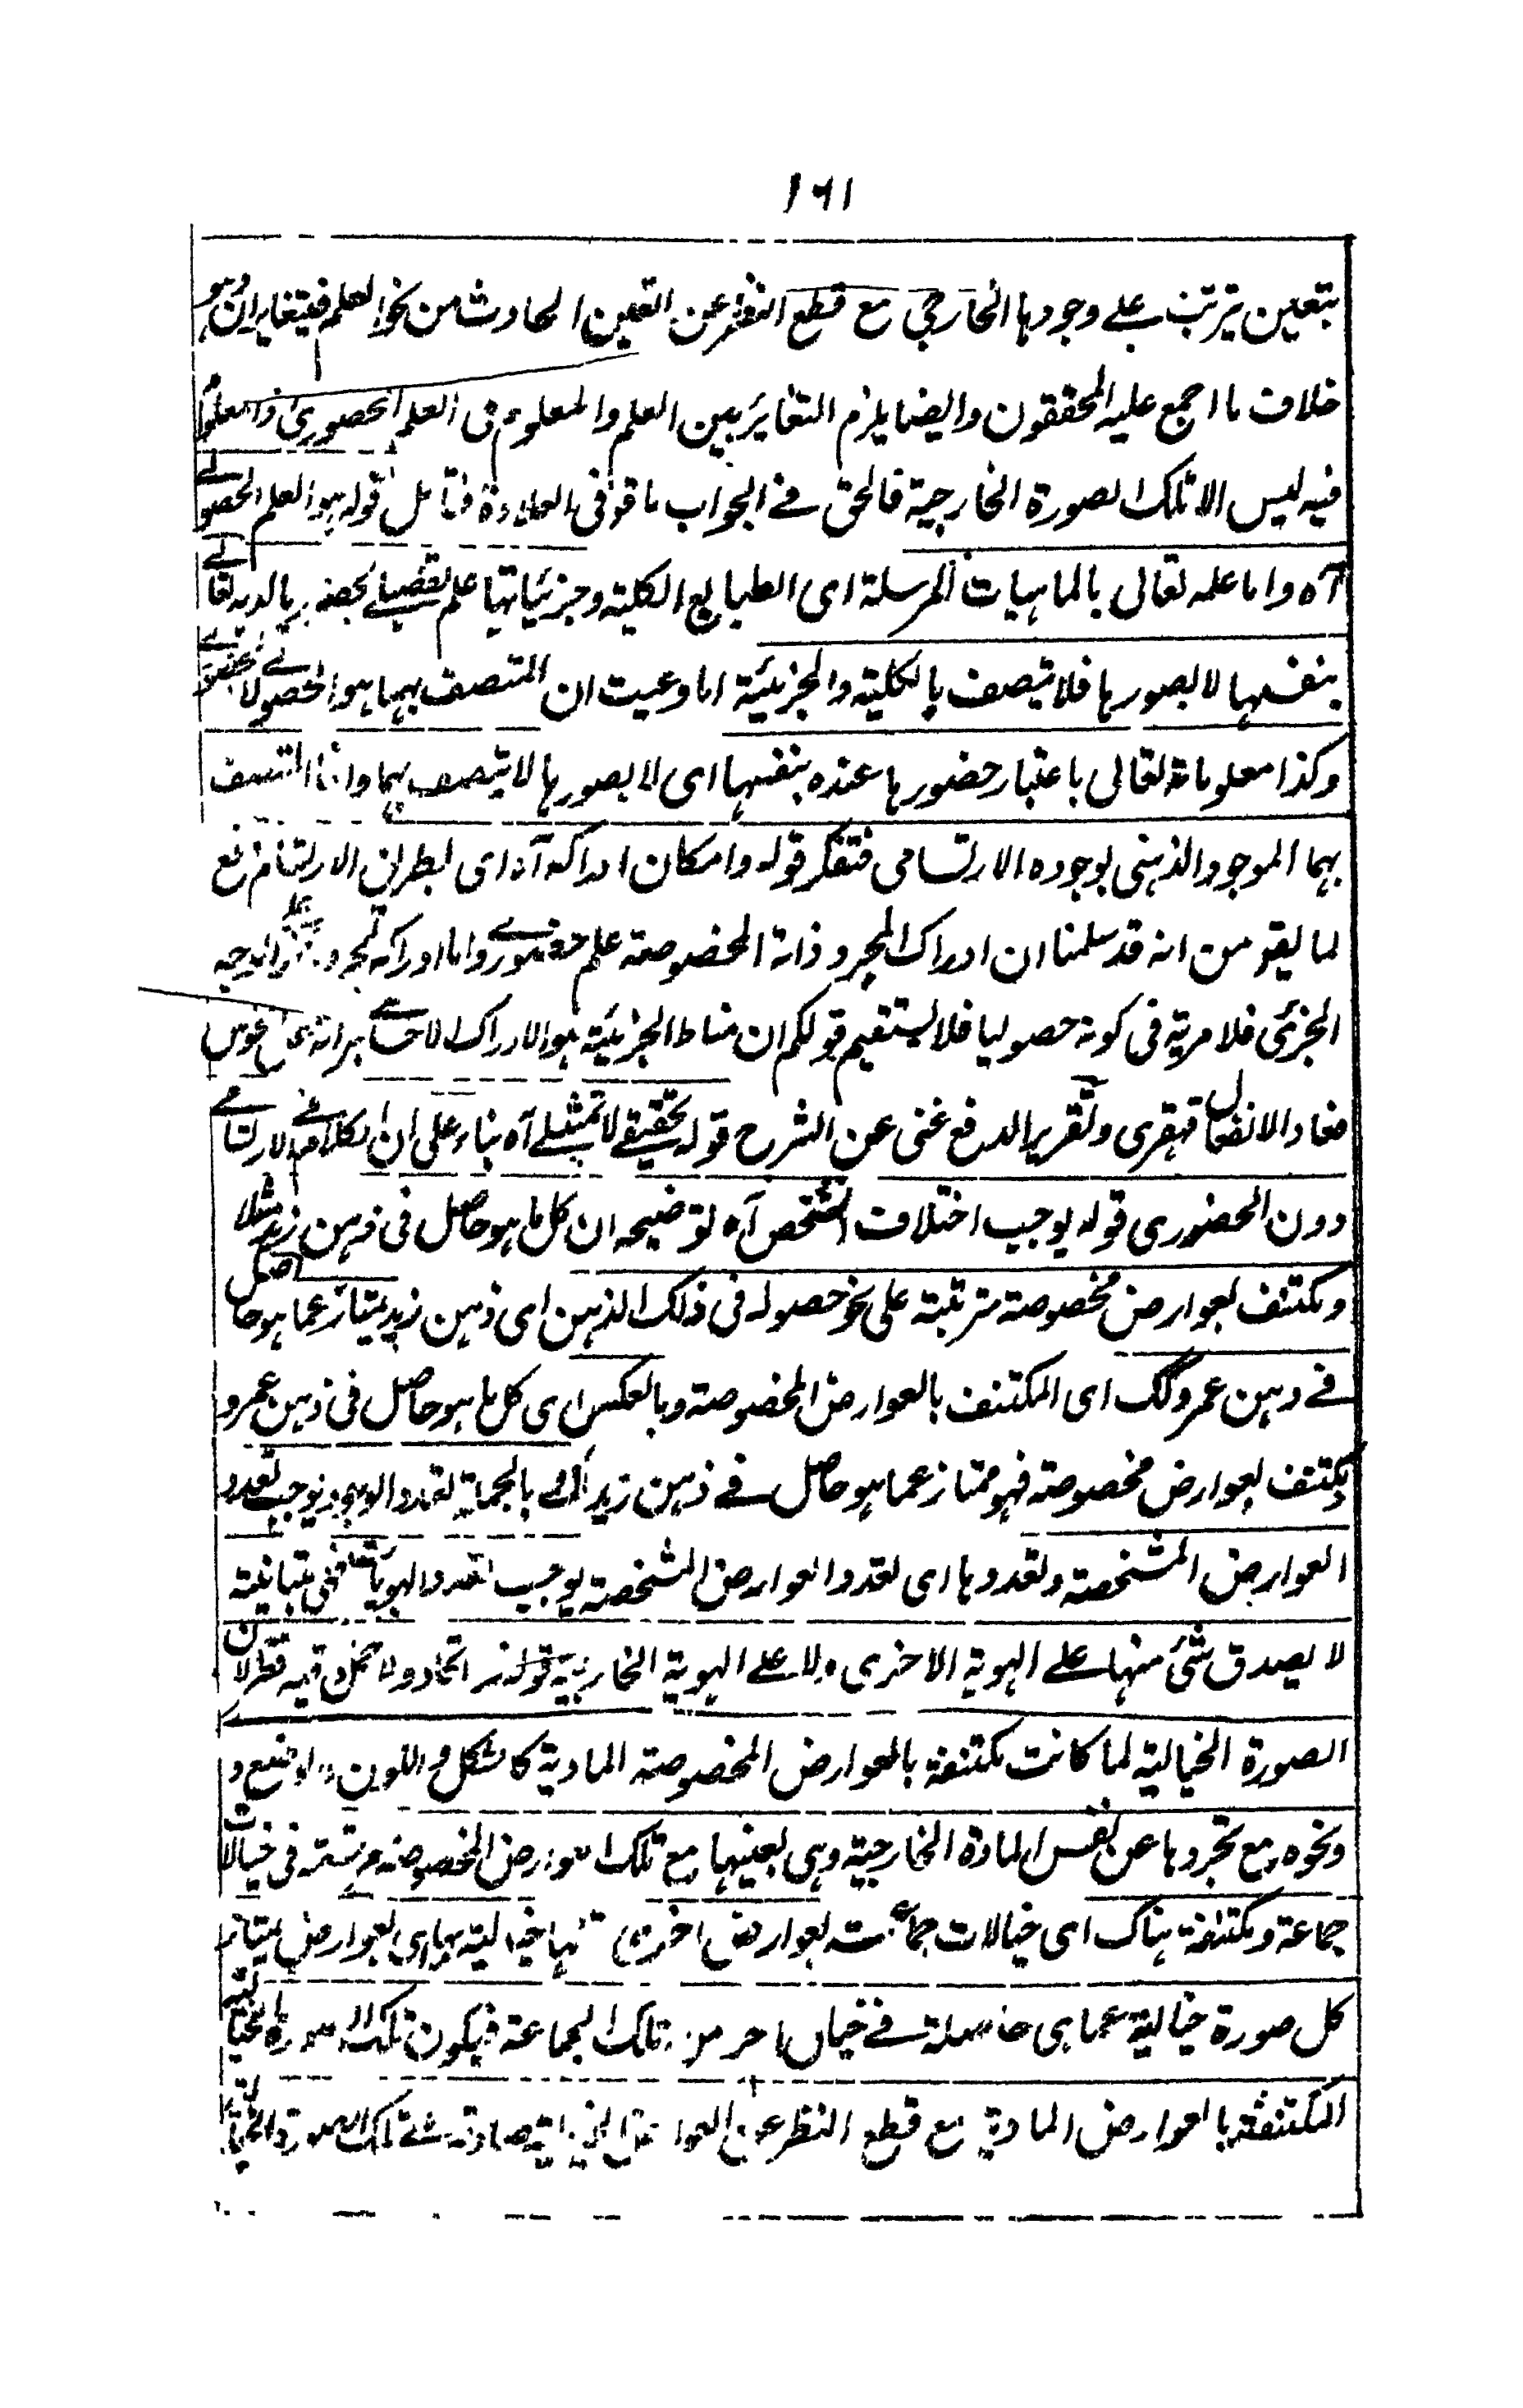 ١٦١
بتعين يترتب على وجودها الخارجي مع قطع النظر عن التعين الحادث من نحو العلم فيتغايران وهو
خلاف ما اجمع عليه المحققون وايضا يلزم التغاير بين العلم والمعلوم فى العلم الحضورى اذ المعلوم
فيه ليس الا تلك الصورة الخارجية فالحق فى الجواب ما قو فى العلاوة فتامل قوله هو العلم الحصولى
آه واما علمه تعالى بالماهيات المرسلة اى الطبايع الكلية وجزئياتها علم تفصيلى بحضورها لديه تعالى
بنفسها لا بصورها فلا يتصف بالكلية والجزئية اما وعيت ان المتصف بهما هو الحصولى لا الحضورى
وكذا معلوماته تعالى باعتبار حضورها عنده بنفسها اى لا بصورها لا يتصف بهما وانما المتصف
بهما الموجود الذهنى بوجوده الارتسامى فتفكر قوله وامكان ادراكه آه اى بطريق الارتسام دفع
لما يقو من انه قد سلمنا ان ادراك المجرد ذاته المخصوصة علم حضورى واما ادراكه لمجرد على وجه
الجزئى فلا مرية فى كونه حصوليا فلا يستقيم قولكم ان مناط الجزئية هو الادراك الاحساسى
فعاد الانفصال قهقرى وتقرير الدفع غنى عن الشرح قوله تحقيقى لا تمثيلى آه بناء على ان الكلام فى الارتسامى
دون الحضورى قوله يوجب اختلاف التشخص آه توضيحه ان كل ما هو حاصل فى ذهن زيد مثلا
ومكتنف بعوارض مخصوصة مترتبة على نحو حصوله فى ذلك الذهن اى ذهن زيد يمتاز عما هو حاصل
فى ذهن عمرو كك اى المكتنف بالعوارض المخصوصة وبالعكس اى كل ما هو حاصل فى ذهن عمرو
يكتنف بعوارض مخصوصة فهو ممتاز عما هو حاصل فى ذهن زيد بالجملة تعدد الوجود يوجب تعدد
العوارض المشخصة وتعددها اى تعدد العوارض المشخصة يوجب تعدد الهويات فهى متباينة
لا يصدق شئ منها على الهوية الاخرى ولا على الهوية الخارجية قوله اتحاد ولا فيه نظر لان
الصورة الخيالية لما كانت مكتنفة بالعوارض المخصوصة المادية كالشكل واللون والوضع و
ونحوه مع تجردها عن نفس المادة الخارجية وهى بعينها مع تلك العوارض المخصوصة مرتسمة فى خيالات
جماعة ومكتنفة هناك اى خيالات جماعة بعوارض اخرى خيالية بها اى بعوارض يمتاز
كل صورة خيالية عما هى حاصلة فى خيال اخر من تلك الجماعة فيكون تلك الصورة الخيالية
المكتنفة بالعوارض المادية مع قطع النظر عن العوارض الخيالية صادقة تلك الصورة الخيالية